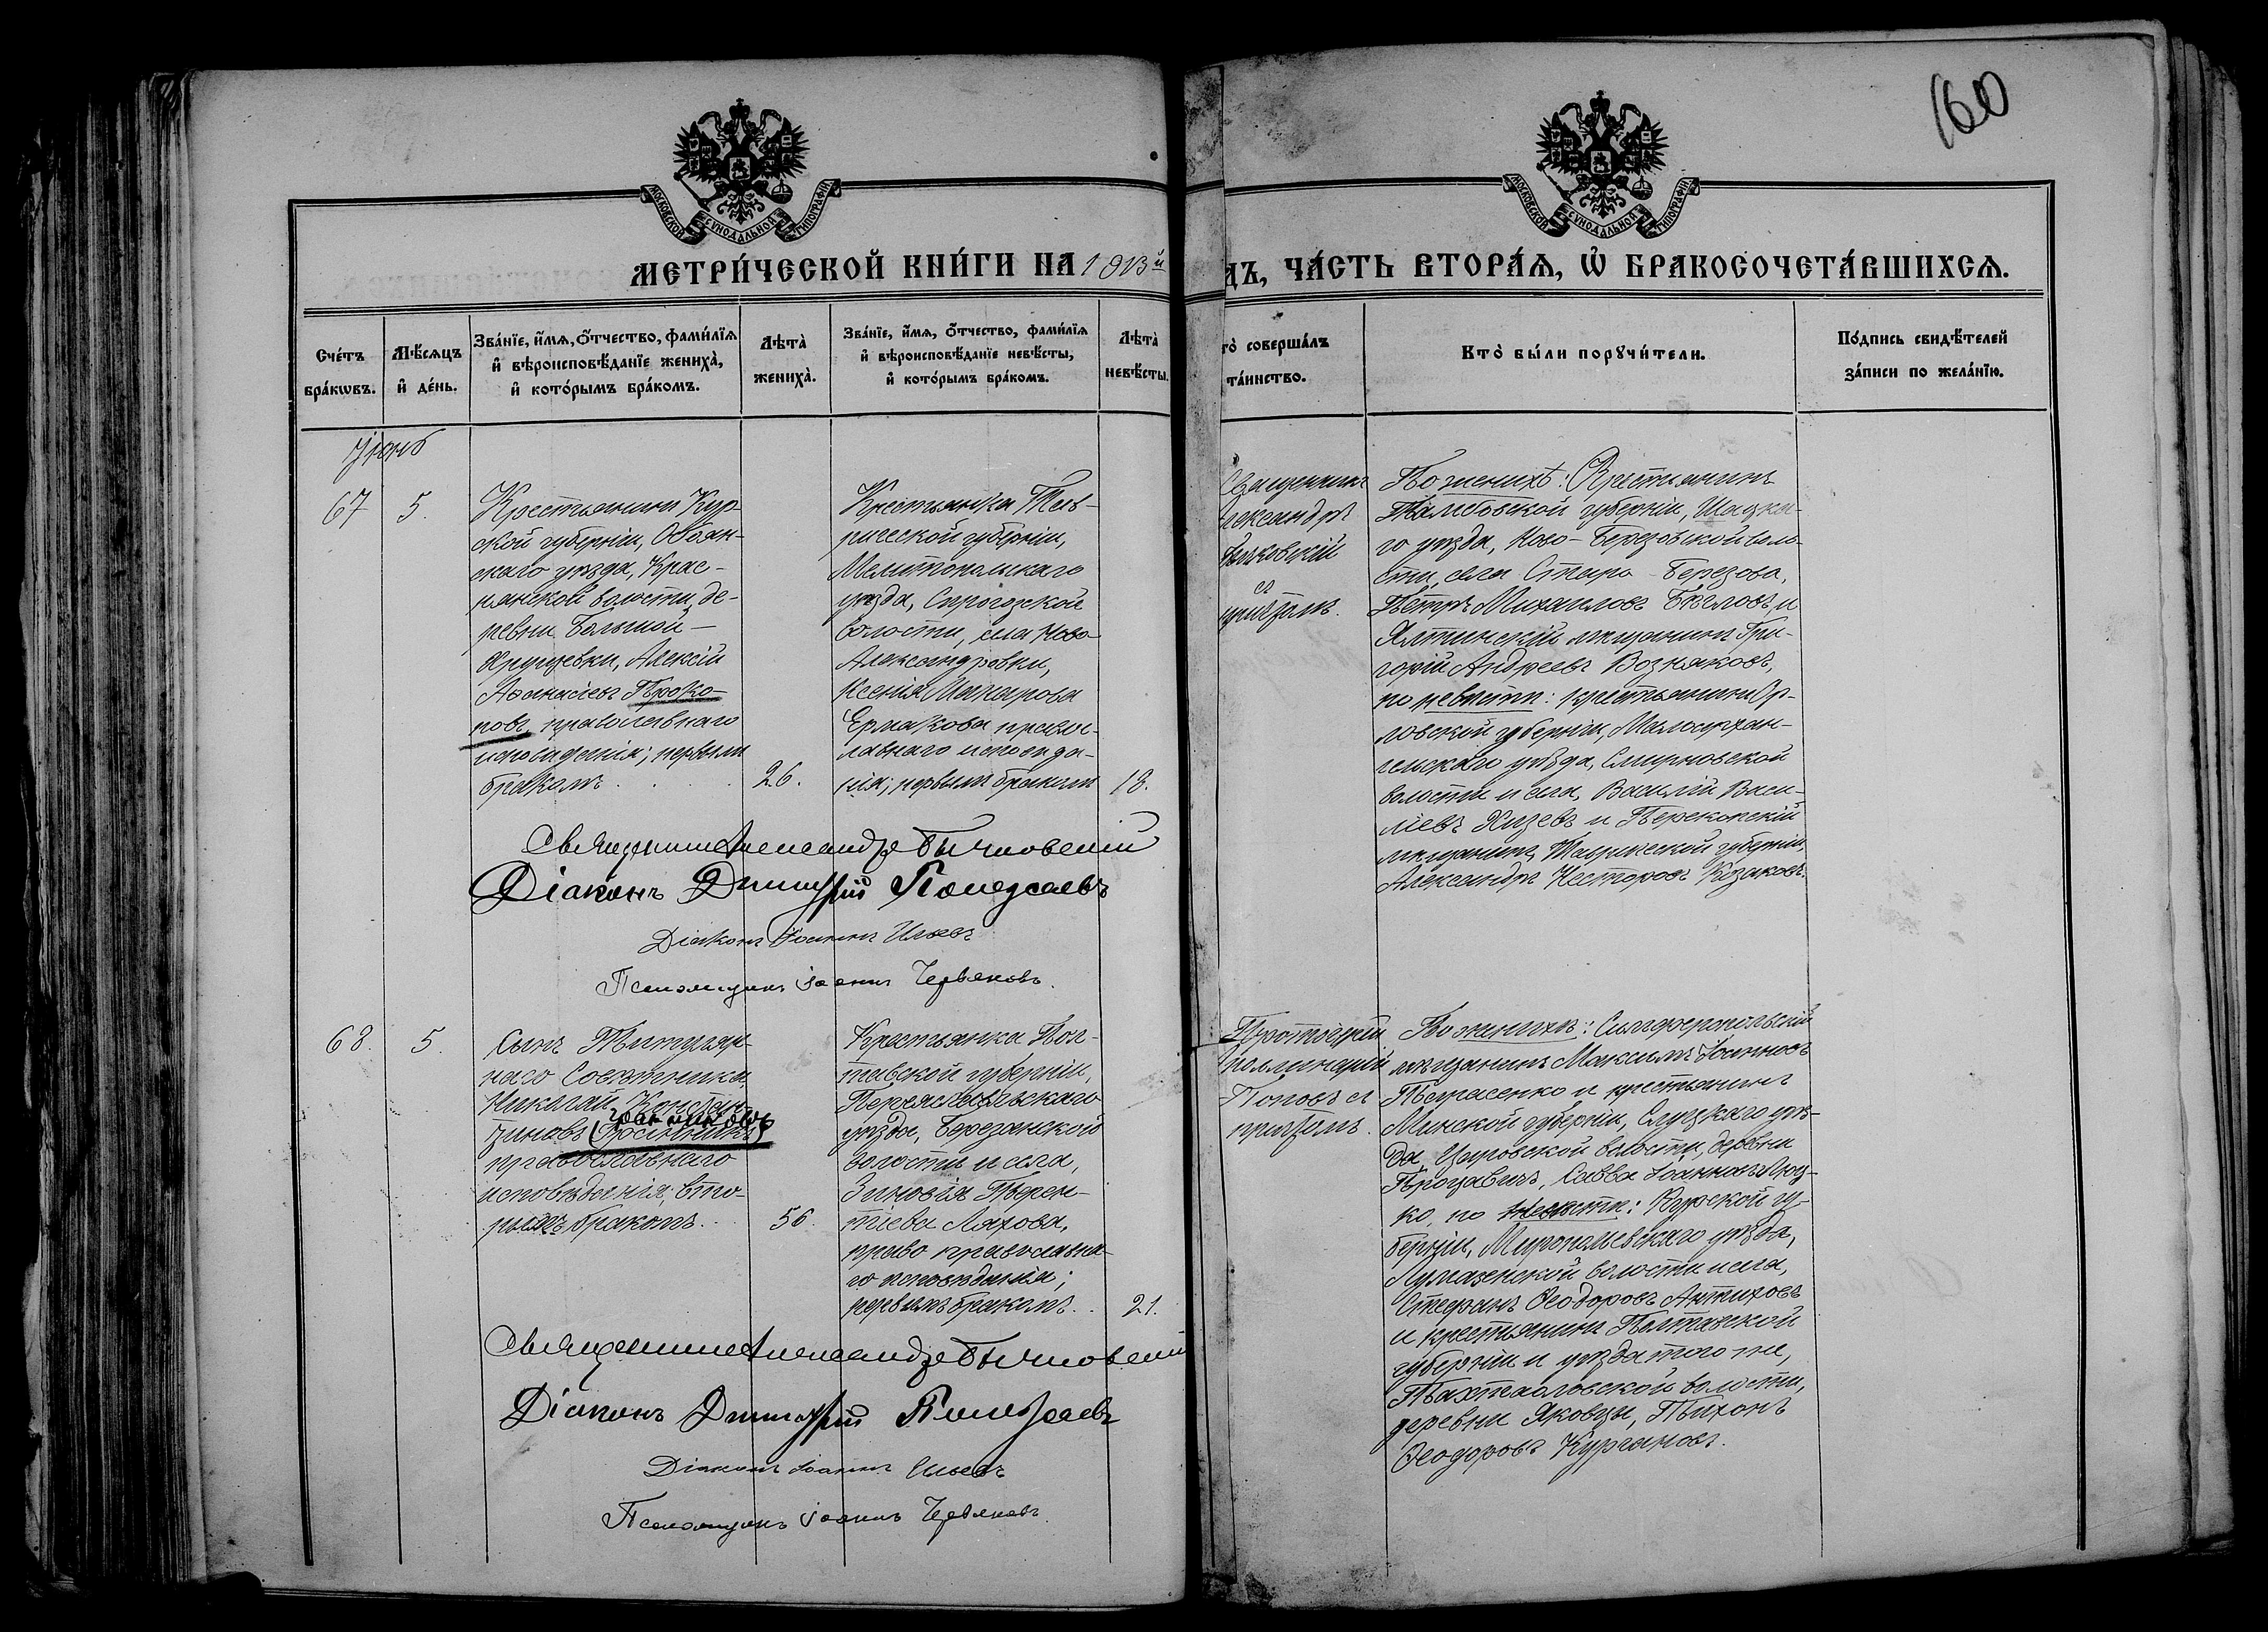 160
МОСКОВСКОЙ СѴНОДАЛЬНОЙ ТИПОГРАФІИ
МОСКОВСКОЙ СѴНОДАЛЬНОЙ ТИПОГРАФІИ
МЕТРИ́ЧЕСКОЙ КНИ́ГИ НА 1913й
ДЪ, ЧА́СТЬ ВТОРА́Ѧ, Ѡ҆ БРАКОСОЧЕТА́ВШИХСѦ.
Сче́тъ
бра́кѡвъ.
Мѣ́сѧцъ
и҆ де́нь.
Зва́нїе, и҆́мѧ, ѻ҆́тчество, фами́лїѧ
и҆ вѣроисповѣ́данїе жениха̀,
и҆ кото́рымъ бра́комъ.
Лѣта̀
жениха̀.
Зва́нїе, и҆́мѧ, ѻ҆́тчество, фами́лїѧ
и҆ вѣроисповѣ́данїе невѣ́сты,
и҆ кото́рымъ бра́комъ.
Лѣта̀
невѣ́сты.
то̀ соверша́лъ
та́инство.
Кто̀ бы́ли порꙋчи́тели.
По́дпись свидѣ́телей
за́писи по жела́нїю.
Іюнь
67
5.
Крестьянинъ Кур-
ской губерніи, Обоян-
скаго уѣзда, Крас-
нянской волости, де-
ревни Большой-
Хрущевки, Алексій
Аѳанасіевъ Проко-
повъ, православнаго
исповѣданія; первымъ
бракомъ
26.
Крестьянка Тав-
рической губерніи,
Мелитопольскаго
уѣзда, Сирогозской
волости, села Ново-
Александровки,
Ксенія Макарова
Ермакова правос-
лавнаго исповѣда-
нія; первымъ бракомъ
18.
Священникъ
лександръ
ычковскій
съ
причтомъ.
По женихѣ: Крестьянинъ
Тамбовской губерніи, Шацка-
го уѣзда, Ново-Березовской воло-
сти, села Старо-Березова,
Петръ Михаиловъ Бѣловъ и
Ялтинскій мѣщанинъ Гри-
горій Андреевъ Возняковъ,
по невѣстѣ: крестьянинъ Ор-
ловской губерніи, Малоархан-
гельскаго уѣзда, Смирновской
волости и села, Василій Васи-
ліевъ Хизевъ и Перекопскій
мѣщанинъ, Таврической губерніи,
Александръ Несторовъ Козаковъ.
Священникъ Александръ Бычковскій
Діаконъ Димитрій
Діаконъ Іоаннъ Ильевъ
Псаломщикъ Іоаннъ Червяковъ.
68.
5.
Сынъ Титуляр-
наго Совѣтника
Николай Констан-
тиновъ
православнаго
исповѣданія; вто-
рымъ бракомъ.
56.
Крестьянка Пол-
тавской губерніи,
Переяславльскаго
уѣзда, Березанской
волости и села,
Зиновія Терен-
тіева Ляхова,
право православна-
го исповѣданія;
первымъ бракомъ.
21.
Протоіерей
поллинарій
Поповъ съ
причтомъ.
По женихѣ: Симферопольскій
мѣщанинъ Максимъ Іоанновъ
Петрасенко и крестьянинъ
Минской губерніи, Слуцкаго уѣз-
да, Цировской волости, деревни
Савва Іоанновъ
ко, по невѣстѣ: Курской гу-
берніи, Миропольевскаго уѣзда,
волости и села,
Стефанъ Ѳеодоровъ Антиховъ
и крестьянинъ Полтавской
губерніи и уѣзда того же,
Тахтаоловской волости,
деревни Яковцы, Тихонъ
Ѳеодоровъ Кургановъ.
Священникъ Александръ Бычковскій
Діаконъ Димитрій
Діаконъ Іоаннъ Ильевъ
Псаломщикъ Іоаннъ Червяковъ.